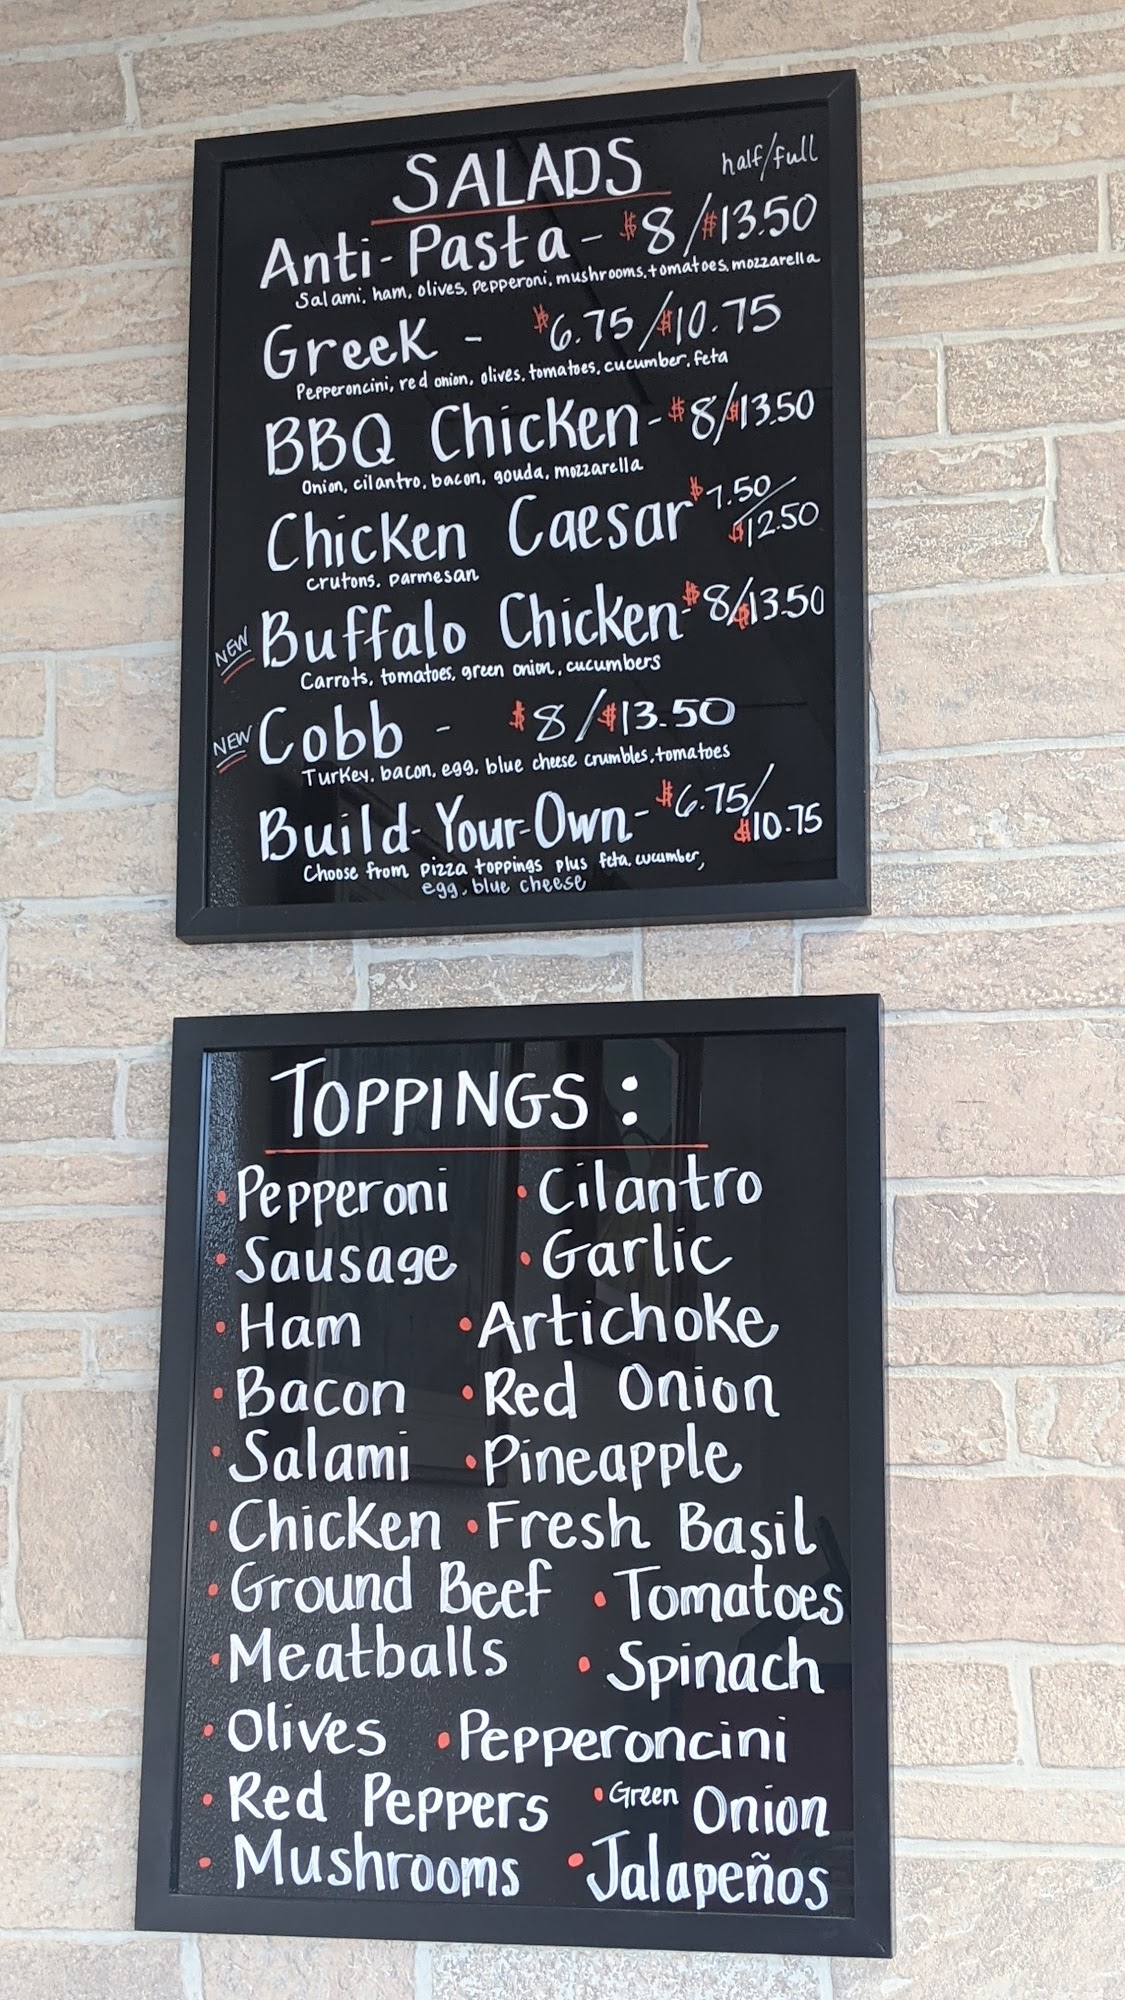 SALADS half/full
Anti-Pasta - $8/$13.50
Salami, ham, olives, pepperoni, mushrooms, tomatoes, mozzarella
Greek - $6.75/$10.75
Pepperoncini, red onion, olives, tomatoes, cucumber, feta
BBQ Chicken - $8/$13.50
Onion, cilantro, bacon, gouda, mozzarella
Chicken Caesar $7.50/
$12.50
crutons, parmesan
NEW Buffalo Chicken - $8/$13.50
Carrots, tomatoes, green onion, cucumbers
NEW Cobb - $8/$13.50
Turkey, bacon, egg, blue cheese crumbles, tomatoes
Build-Your-Own - $6.75/
$10.75
Choose from pizza toppings plus feta, cucumber,
egg, blue cheese
TOPPINGS:
• Pepperoni • Cilantro
• Sausage • Garlic
• Ham • Artichoke
• Bacon • Red Onion
• Salami • Pineapple
• Chicken • Fresh Basil
• Ground Beef • Tomatoes
• Meatballs • Spinach
• Olives • Pepperoncini
• Red Peppers • Green Onion
• Mushrooms • Jalapeños